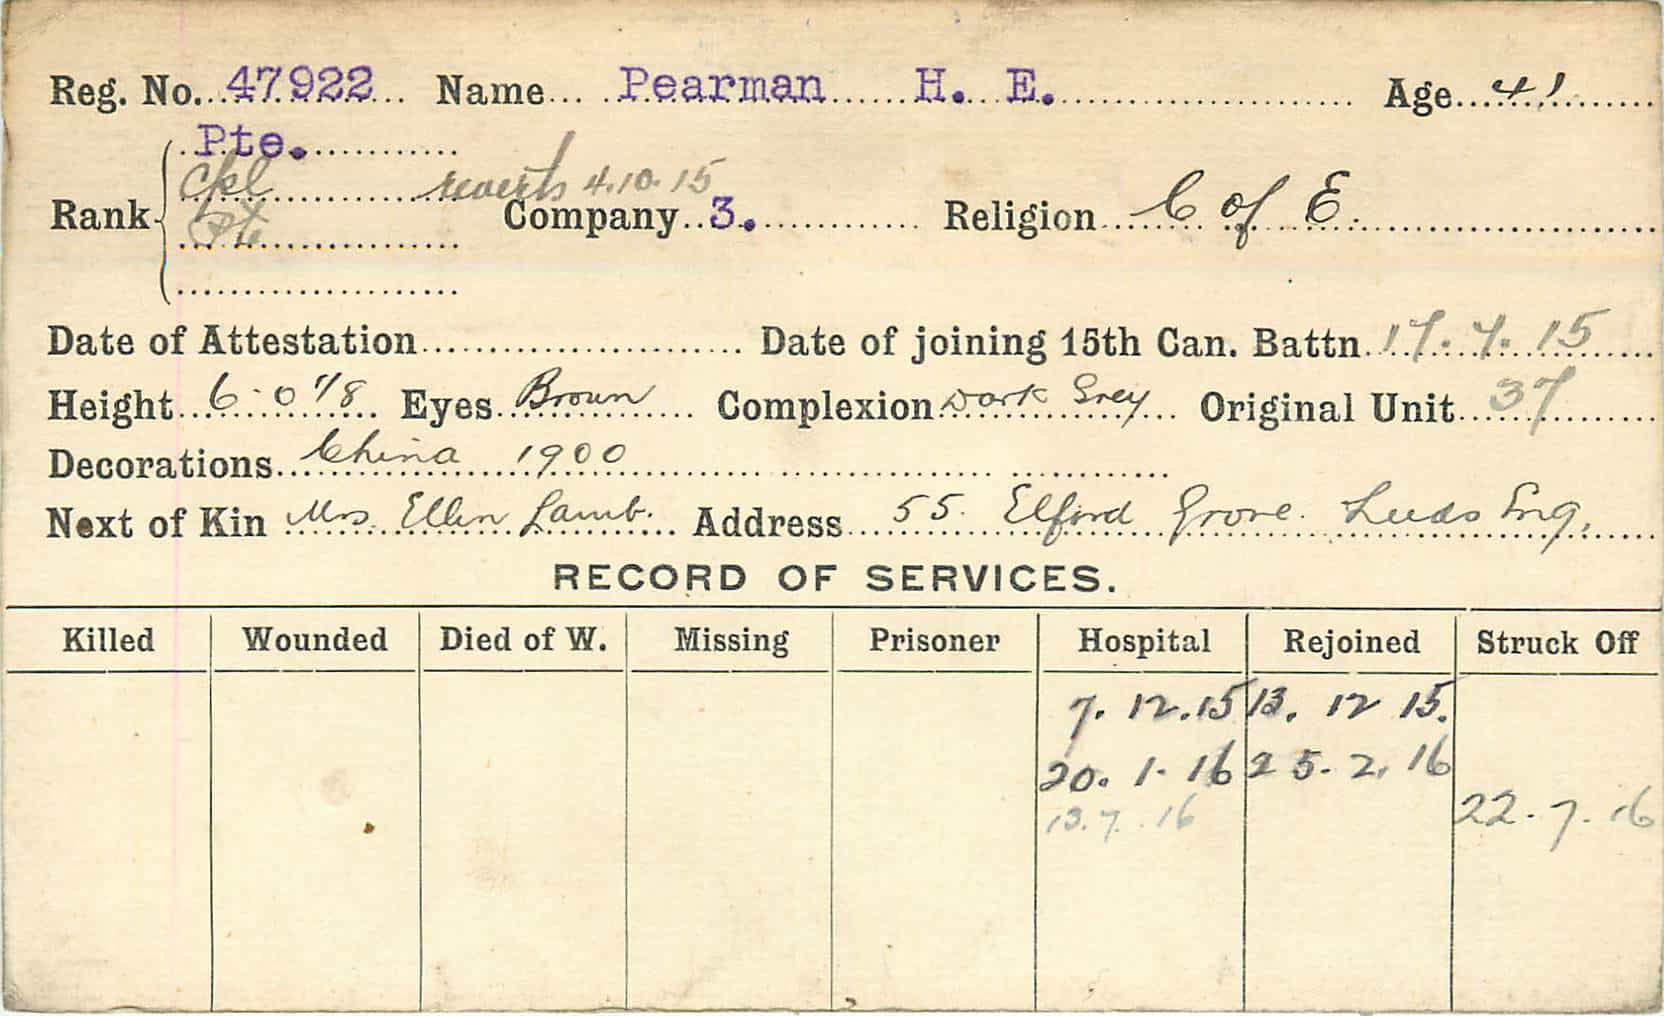 Reg. No. 47922 Name Pearman H. E. Age 41
Pte.
Cpl reverts 4.10.15
Rank Pte Company 3. Religion C of E.
Date of Attestation Date of joining 15th Can. Battn 17.7.15
Height 6-0 1/8 Eyes Brown Complexion Dark Grey Original Unit 37
Decorations China 1900
Next of Kin Mrs. Ellen Lamb. Address 55. Elford Grove. Leeds Eng.
RECORD OF SERVICES.
Killed Wounded Died of W. Missing Prisoner Hospital Rejoined Struck Off
7. 12.15 13. 12 15.
20. 1. 16 25. 2. 16
13.7.16 22.7.16